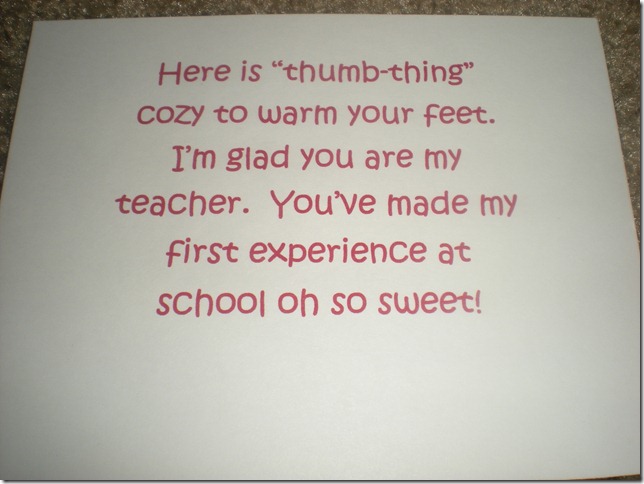 Here is “thumb-thing”
cozy to warm your feet.
I’m glad you are my
teacher.  You’ve made my
first experience at
school oh so sweet!